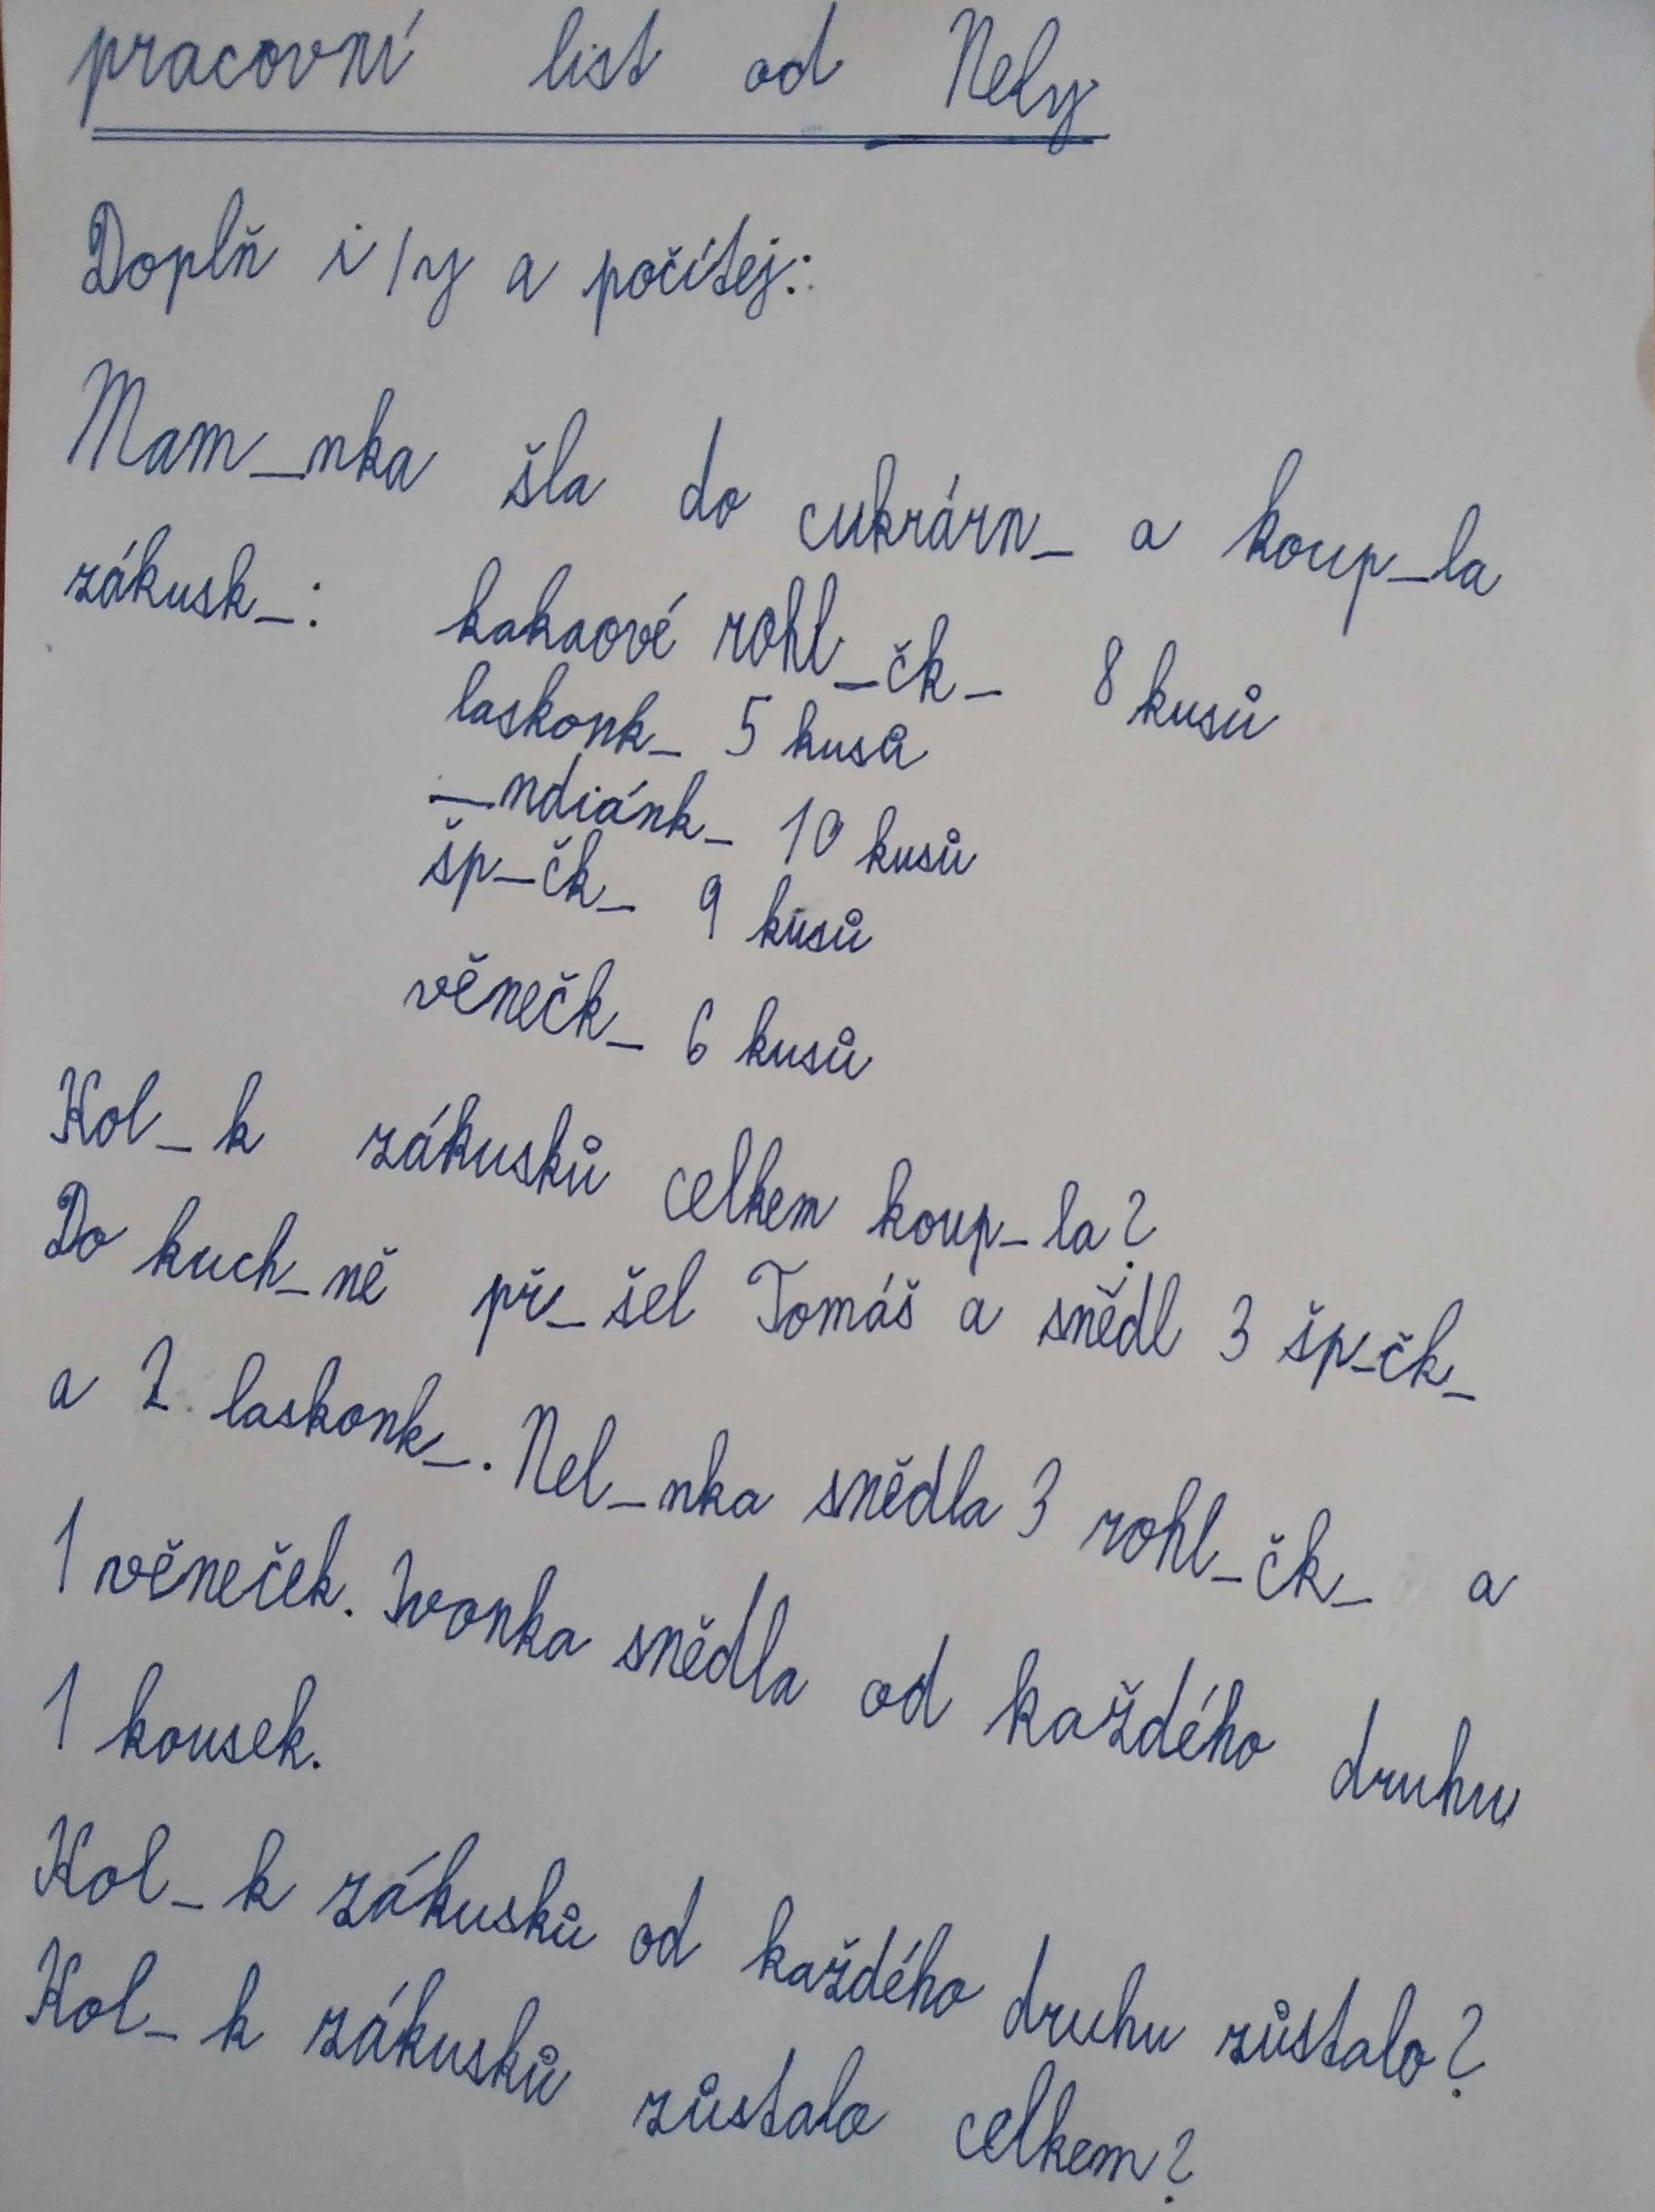 pracovní list od Nely
Doplň i/y a počítej:
Mam_nka šla do cukrárn_ a koup_la
zákusk_: kakaové rohl_čk_ 8 kusů
laskonk_ 5 kusů
_ndiánk_ 10 kusů
šp_čk_ 9 kusů
věnečk_ 6 kusů
Kol_k zákusků celkem koup_la?
Do kuch_ně př_šel Tomáš a snědl 3 šp_čk_
a 2 laskonk_. Nel_nka snědla 3 rohl_čk_ a
1 věneček. Ivonka snědla od každého druhu
1 kousek.
Kol_k zákusků od každého druhu zůstalo?
Kol_k zákusků zůstalo celkem?